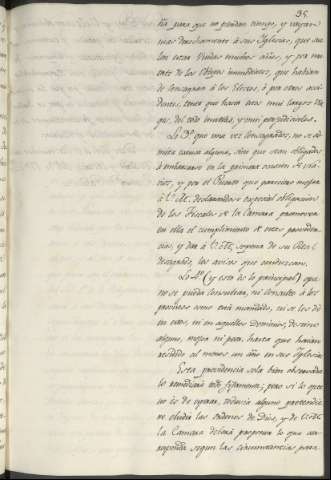 35
tia para que no pierdan tiempo, y vayan
mas derechamente à sus Iglesias, que sue-
len estar viudas muchos años, y por mu-
erte de los Obispos inmediatos, que havian
de consagrar à los Electos, ò por otros acci-
dentes, tener que hacer estos mui largos Via-
ges, del todo inutiles, y mui perjudiciales.
Lo 3.º que una vez Consagrados, no se ad-
mita causa alguna, sino que sean obligados
à embarcarse en la primera ocasion de na-
vios, y por el Puerto que pareciere mejor
à V.M. declarandose especial obligacion
de los Fiscales de la Camara promover
en ella el cumplimiento de estas providen-
cias, y dar à V.M., separa de su Real
desagrado, los avisos que conduzcan.
Lo 4.º (y esto es lo principal) que
no se pueda consultar, ni consulte à los
provistos como está mandado, ni se les dè
en esto, ni en aquellos Dominios, destino
alguno, mejor ni peor, hasta que hayan
residido al menos un año en sus Iglesias.
Esta providencia sola bien observada
lo remediarà todo seguramente; pero si lo que
no es de esperar, todavia alguno pretendie-
re eludir las ordenes de Dios, y de V.M.
la Camara deberà proponer lo que co-
rresponda segun las circunstancias para